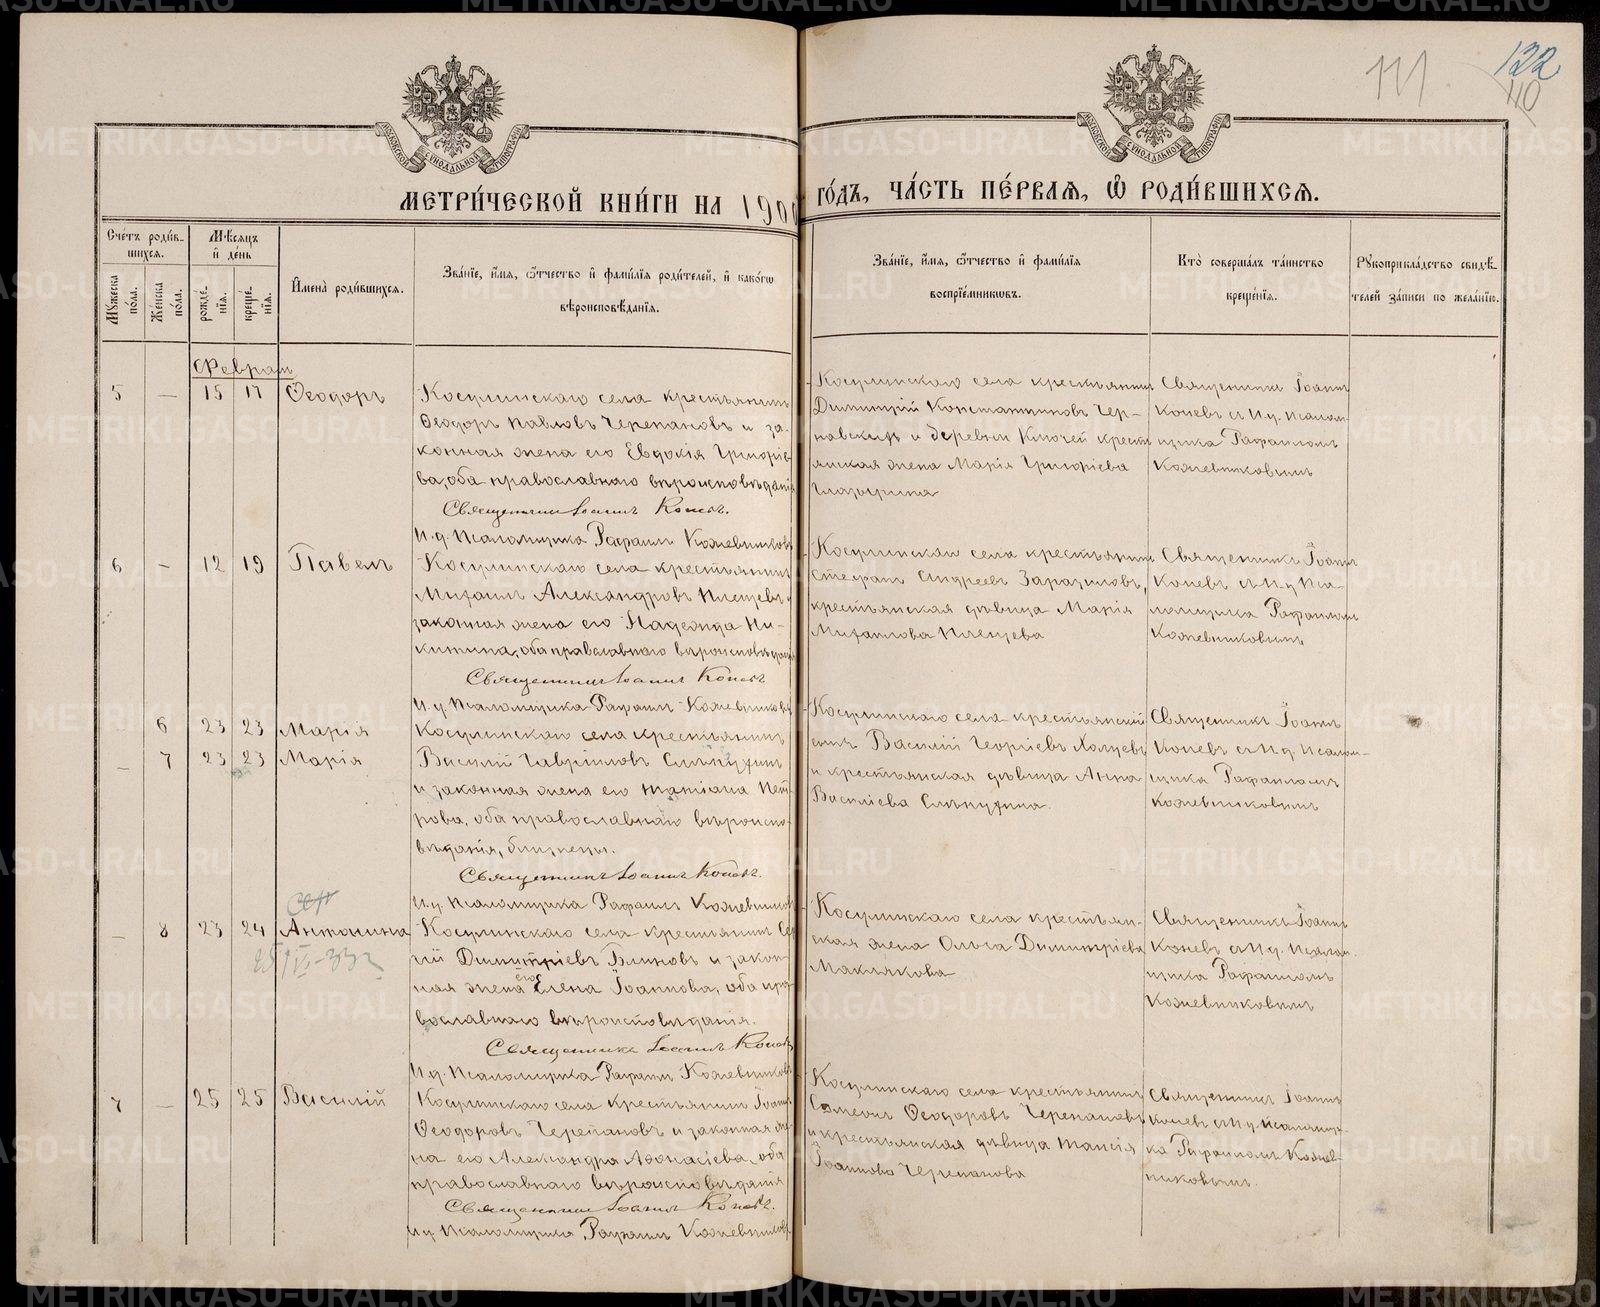 111
122
110
МОСКОВСКОЙ СѴНОДАЛЬНОЙ ТИПОГРАФІИ
МОСКОВСКОЙ СѴНОДАЛЬНОЙ ТИПОГРАФІИ
МЕТРИ́ЧЕСКОЙ КНИ́ГИ НА 190
ГО́ДЪ, ЧА́СТЬ ПЕ́РВАѦ, Ѡ҆ РОДИ́ВШИХСѦ.
Сче́тъ роди́в-
шихсѧ.
Мꙋ́жеска по́ла.
Же́нска по́ла.
Мѣ́сѧцъ
и҆ де́нь
рожде́-
нїѧ.
креще́-
нїѧ.
И҆мена̀ роди́вшихсѧ.
Зва́нїе, и҆́мѧ, ѻ҆́тчество и҆ фами́лїѧ роди́телей, и҆ како́гѡ
вѣроисповѣ́данїѧ.
Зва́нїе, и҆́мѧ, ѻ҆́тчество и҆ фами́лїѧ
воспрїе́мникѡвъ.
Кто̀ соверша́лъ та́инство
креще́нїѧ.
Рꙋкоприкла́дство свидѣ́-
телей за́писи по жела́нїю.
Февраль
5 — 15 17 Ѳеодоръ
Косулинскаго села крестьянинъ
Ѳеодоръ Павловъ Черепановъ и за-
конная жена его Евдокія Григоріе-
ва, оба православнаго вѣроисповѣданія
Священникъ Іоаннъ Коневъ.
И.д. Псаломщика Рафаилъ Кожевниковъ
Косулинскаго села крестьянинъ
Димитрій Константиновъ Чер-
навскихъ и деревни Ключей кресть
янская жена Марія Григоріева
Глазырина
Священникъ Іоаннъ
Коневъ съ И.д. Псалом-
щика Рафаиломъ
Кожевниковымъ
6 — 12 19 Павелъ
Косулинскаго села крестьянинъ
Михаилъ Александровъ Плещевъ и
законная жена его Надежда Ни-
китина, оба православнаго вѣроисповѣданія
Священникъ Іоаннъ Коневъ
И.д. Псаломщика Рафаилъ Кожевниковъ
Косулинскаго села крестьянинъ
Стефанъ Андреевъ Заразиловъ,
крестьянская дѣвица Марія
Михаилова Плещева
Священникъ Іоаннъ
Коневъ съ И.д. Пса-
ломщика Рафаиломъ
Кожевниковымъ
6 23 23 Марія
— 7 23 23 Марія
Косулинскаго села крестьянинъ
Василій Гавріиловъ Слѣпухинъ
и законная жена его Татіана Пет-
рова, оба православнаго вѣроиспо-
вѣданія, близнецы.
Священникъ Іоаннъ Коневъ.
И.д. Псаломщика Рафаилъ Кожевниковъ
Косулинскаго села крестьянскій
сынъ Василій Георгіевъ
и крестьянская дѣвица Анна
Василіева Слѣпухина
Священникъ Іоаннъ
Коневъ съ И.д. Псалом-
щика Рафаиломъ
Кожевниковымъ
— 8 23 24 Антонина
Косулинскаго села крестьянинъ Сер
гій Димитріевъ Блиновъ и закон
ная жена его Елена Іоаннова, оба пра
вославнаго вѣроисповѣданія.
Священникъ Іоаннъ Коневъ
И.д. Псаломщика Рафаилъ Кожевниковъ
Косулинскаго села крестьян-
ская жена Ольга Димитріева
Маклакова
Священникъ Іоаннъ
Коневъ съ И.д. Псалом
щика Рафаиломъ
Кожевниковымъ
7 — 25 25 Василій
Косулинскаго села крестьянинъ Іоаннъ
Ѳеодоровъ Черепановъ и законная же
на его Александра Аѳонасіева, оба
православнаго вѣроисповѣданія
Священникъ Іоаннъ Коневъ.
И.д. Псаломщика Рафаилъ Кожевниковъ
Косулинскаго села крестьянинъ
Симеонъ Ѳеодоровъ Черепановъ
и крестьянская дѣвица Таисія
Іоаннова Черепанова
Священникъ Іоаннъ
Коневъ съ И.д. Псаломщи-
ка Рафаиломъ Кожев-
никовымъ.
METRIKI.GASO-URAL.RU